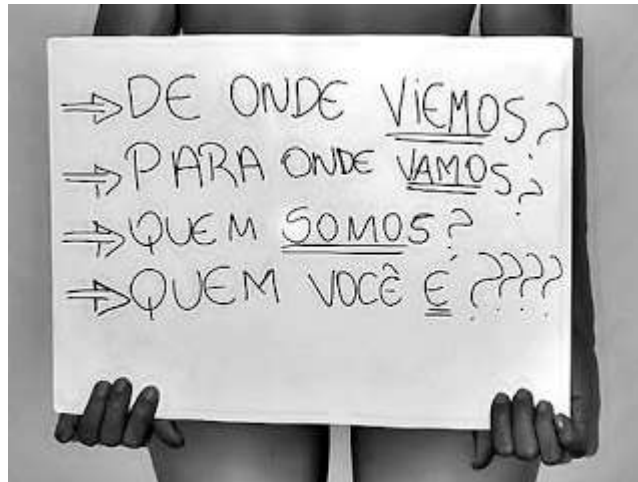 ⇒ DE ONDE VIEMOS?
⇒ PARA ONDE VAMOS?
⇒ QUEM SOMOS?
⇒ QUEM VOCÊ É ????